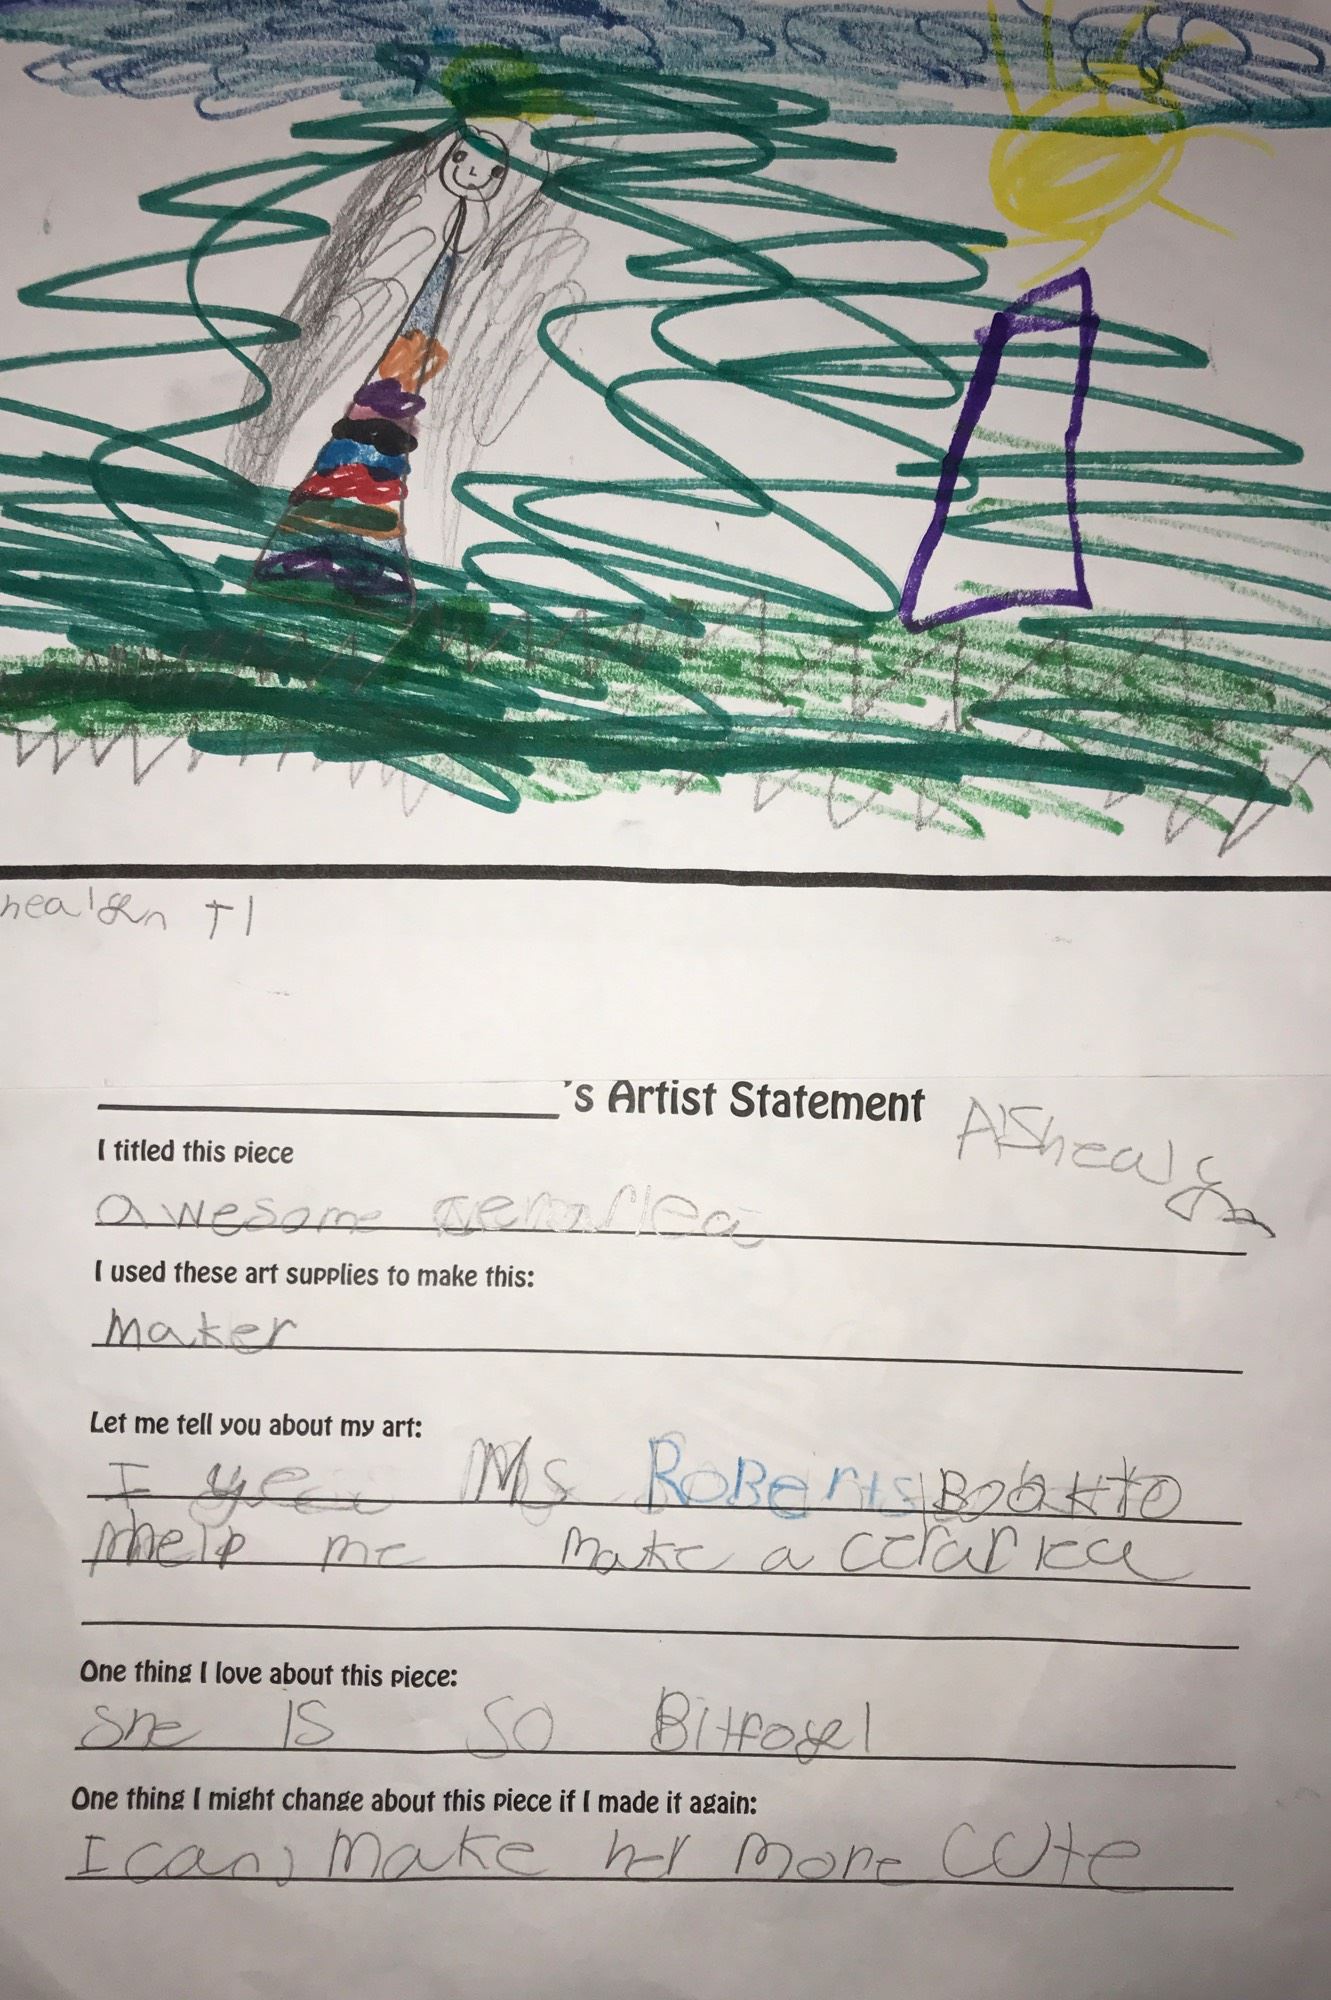 's Artist Statement
I titled this piece
awesome
I used these art supplies to make this:
Maker
Let me tell you about my art:
I Ms RoBerts Book to
help me make a
One thing I love about this piece:
She IS SO Bitfogel
One thing I might change about this piece if I made it again:
I can, make her more CUte